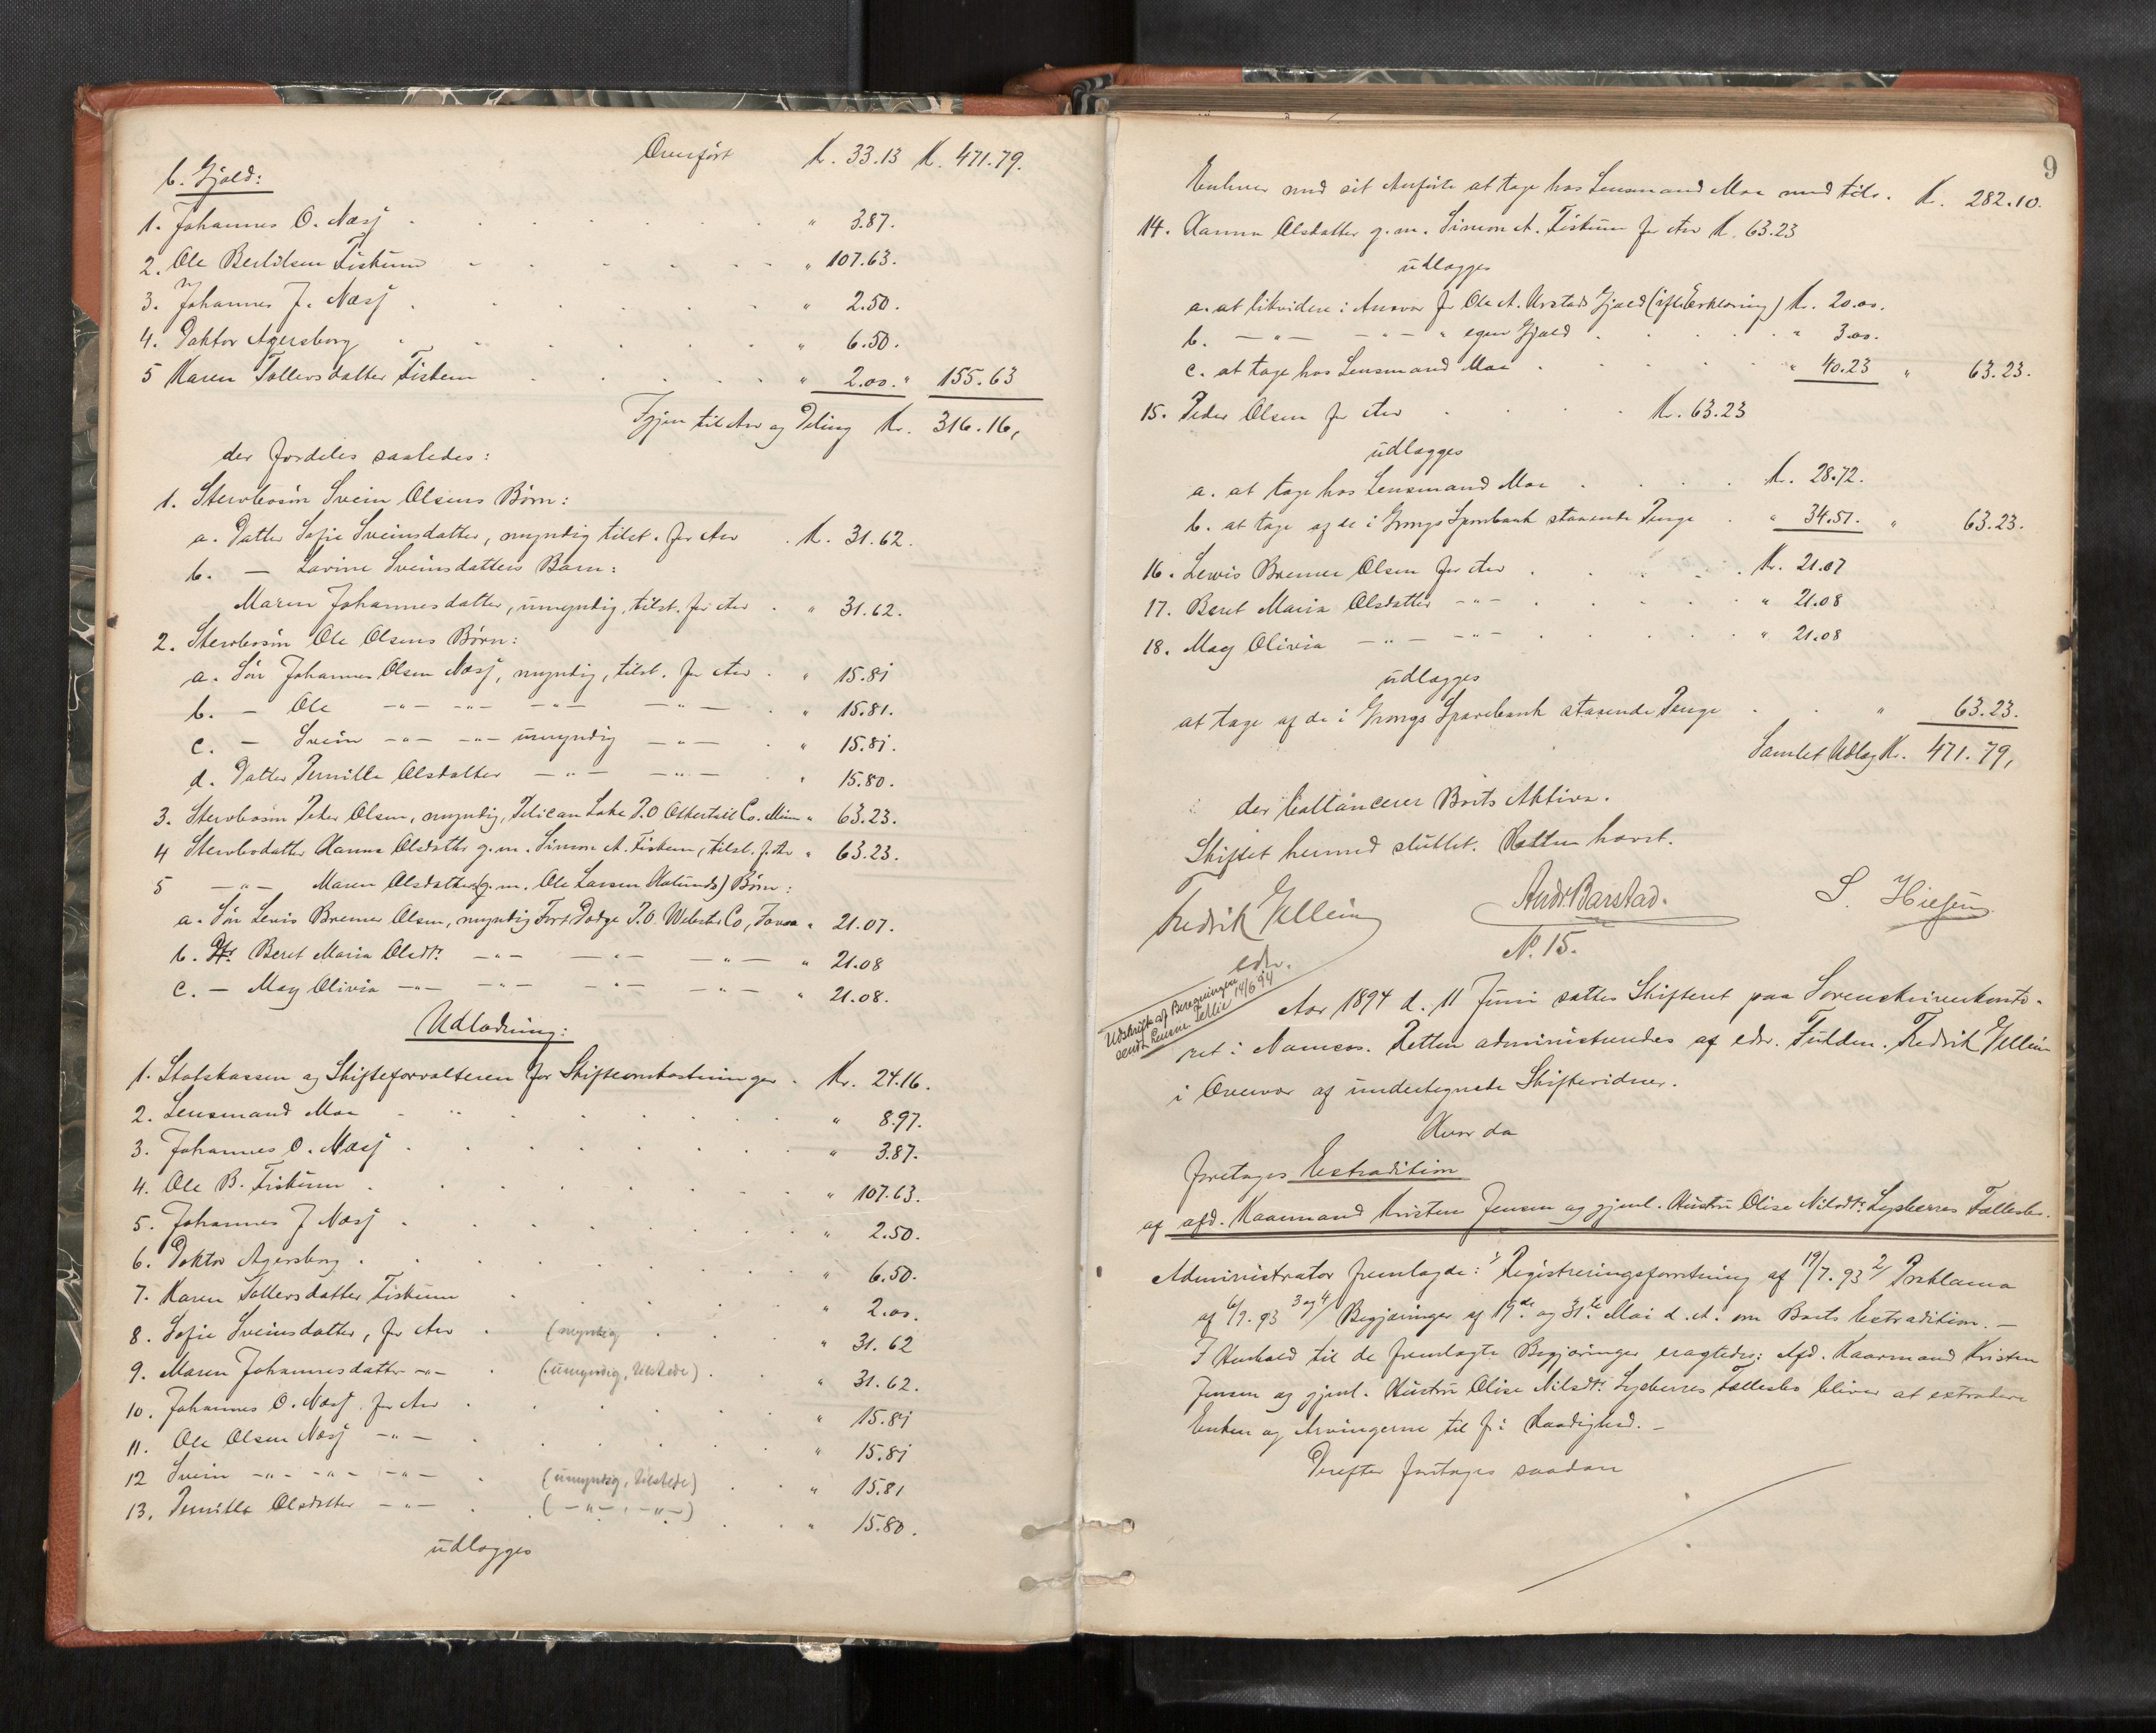 Overført Kr. 33.13 Kr. 471.79.
b. Gjæld:
1. Johannes O. Næsj . . . . " 3.87.
2. Ole Bertilsen Fiskum - . . . " 107.63.
3. Johannes J. Næsj . . . . " 2.50.
4. Doktor Agersborg . . . . " 6.50.
5 Karen Tollevsdatter Fiskum . . . " 2.00. " 155.63
Igjen til Arv og Deling Kr. 316.16,
der fordeles saaledes:
1. Stervbosøn Svein Olsens Børn:
a. Datter Sofie Sveinsdatter, myndig tilst. for Arv . Kr. 31.62.
b. — Lavine Sveinsdatters Barn:
Maren Johannesdatter, umyndig, tilst. for Arv . " 31.62.
2. Stervbosøn Ole Olsens Børn:
a. Søn Johannes Olsen Næsj, myndig, tilst. for Arv . " 15.81
b. — Ole —"— —"— —"— —"— . " 15.81.
c. — Svein —"— —"— umyndig —"— . " 15.81.
d. Datter Pernille Olsdatter —"— —"— . " 15.80.
3. Stervbosøn Peder Olsen, myndig, Pelican Lake P.O Ottertail Co. Minn " 63.23.
4 Stervbodatter Hanna Olsdatter g.m. Simon A. Fiskum, tilst. f. Arv " 63.23.
5 —"— Maren Olsdatters (g.m. Ole Larsen Homlunds) Børn:
a. Søn Lewis Bremer Olsen, myndig Fort Dodge P.O. Webster Co, Iowa " 21.07.
b. Dtr. Beret Maria Olsdtr. —"— —"— —"— " 21.08
c. — May Olivia —"— —"— —"— —"— " 21.08.
Udlodning:
1. Statskassen og Skifteforvalteren for Skifteomkostninger . Kr. 24.16.
2. Lensmand Moe . . . . " 8.97.
3. Johannes O. Næsj . . . . " 3.87.
4. Ole B. Fiskum . . . . " 107.63.
5. Johannes J Næsj . . . . " 2.50.
6. Doktor Agersborg . . . . " 6.50.
7. Karen Tollevsdatter Fiskum . . . " 2.00.
8. Sofie Sveinsdatter, for Arv . (myndig . . " 31.62
9. Maren Johannesdatter —"— . (umyndig, tilstede) . " 31.62.
10. Johannes O. Næsj for Arv . . . " 15.81
11. Ole Olsen Næsj —"— . . . " 15.81
12 Svein —"— —"— —"— . (umyndig, tilstede) . " 15.81
13. Pernille Olsdatter —"— . (—"—, —"—) . " 15.80.
udlægges
9
Enhver med sit Anførte at tage hos Lensmand Moe med tils. Kr. 282.10.
14. Hanna Olsdatter g.m. Simon A. Fiskum for Arv Kr. 63.23
udlægges
a. at likvidere i Ansvar for Ole A. Urstads Gjæld (ifl. Erklæring) Kr. 20.00.
b. —"— —"— " egen Gjæld . . " 3.00.
c. at tage hos Lensmand Moe . . . " 40.23 " 63.23.
15. Peder Olsen for Arv . . . Kr. 63.23
udlægges
a. at tage hos Lensmand Moe . . . Kr. 28.72.
b. at tage af de i Grongs Sparebank staaende Penge . " 34.51. " 63.23.
16. Lewis Bremer Olsen for Arv . . . Kr. 21.07
17. Beret Maria Olsdatter —"— . . . " 21.08
18. May Olivia —"— —"— . . . " 21.08
udlægges
at tage af de i Grongs Sparebank staaende Penge . . " 63.23.
Samlet Udlæg Kr. 471.79,
der ballancerer Boets Aktiva.
Skiftet hermed sluttet. Retten hævet.
Fredrik Vellein Andr. Barstad. S.
edv.
No 15.
Udskrift af Beregningen
sendt Lensm. 14/6 94
Aar 1894 d. 11 Juni sattes Skifteret paa Sorenskriverkonto-
ret i Namsos. Retten administreredes af edv. Fuldm. Fredrik Vellein
i Overvær af undertegnede Skiftevidner.
Hvor da
foretoges Extradition
af afd. Kaarmand Kristen Jensen og gjenl. Hustru Olise Nilsdtr. Lysberres Fællesbo.
Administrator fremlagde: 1/ Registreringsforretning af 19/7. 93 2/ Proklama
af 6/9. 93 3 og 4/ Begjæringer af 19de og 31te Mai d. A. om Boets Extradition. —
I Henhold til de fremlagte Begjæringer eragtedes: Afd. Kaarmand Kristen
Jensen og gjenl. Hustru Olise Nilsdtr. Lysberres Fællesbo bliver at extradere
Enken og Arvingerne til fri Raadighed. —
Derefter foretoges saadan